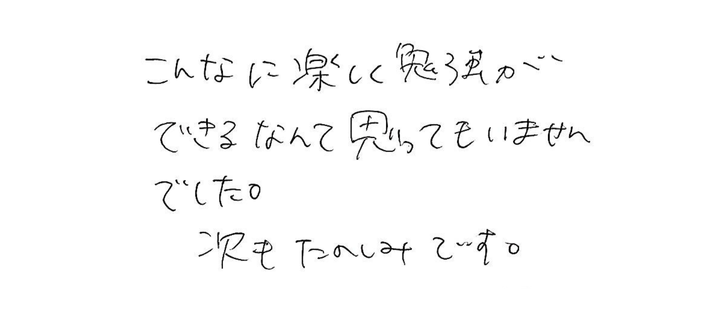 こんなに楽しく勉強が
できるなんて思ってもいません
でした。
次もたのしみです。